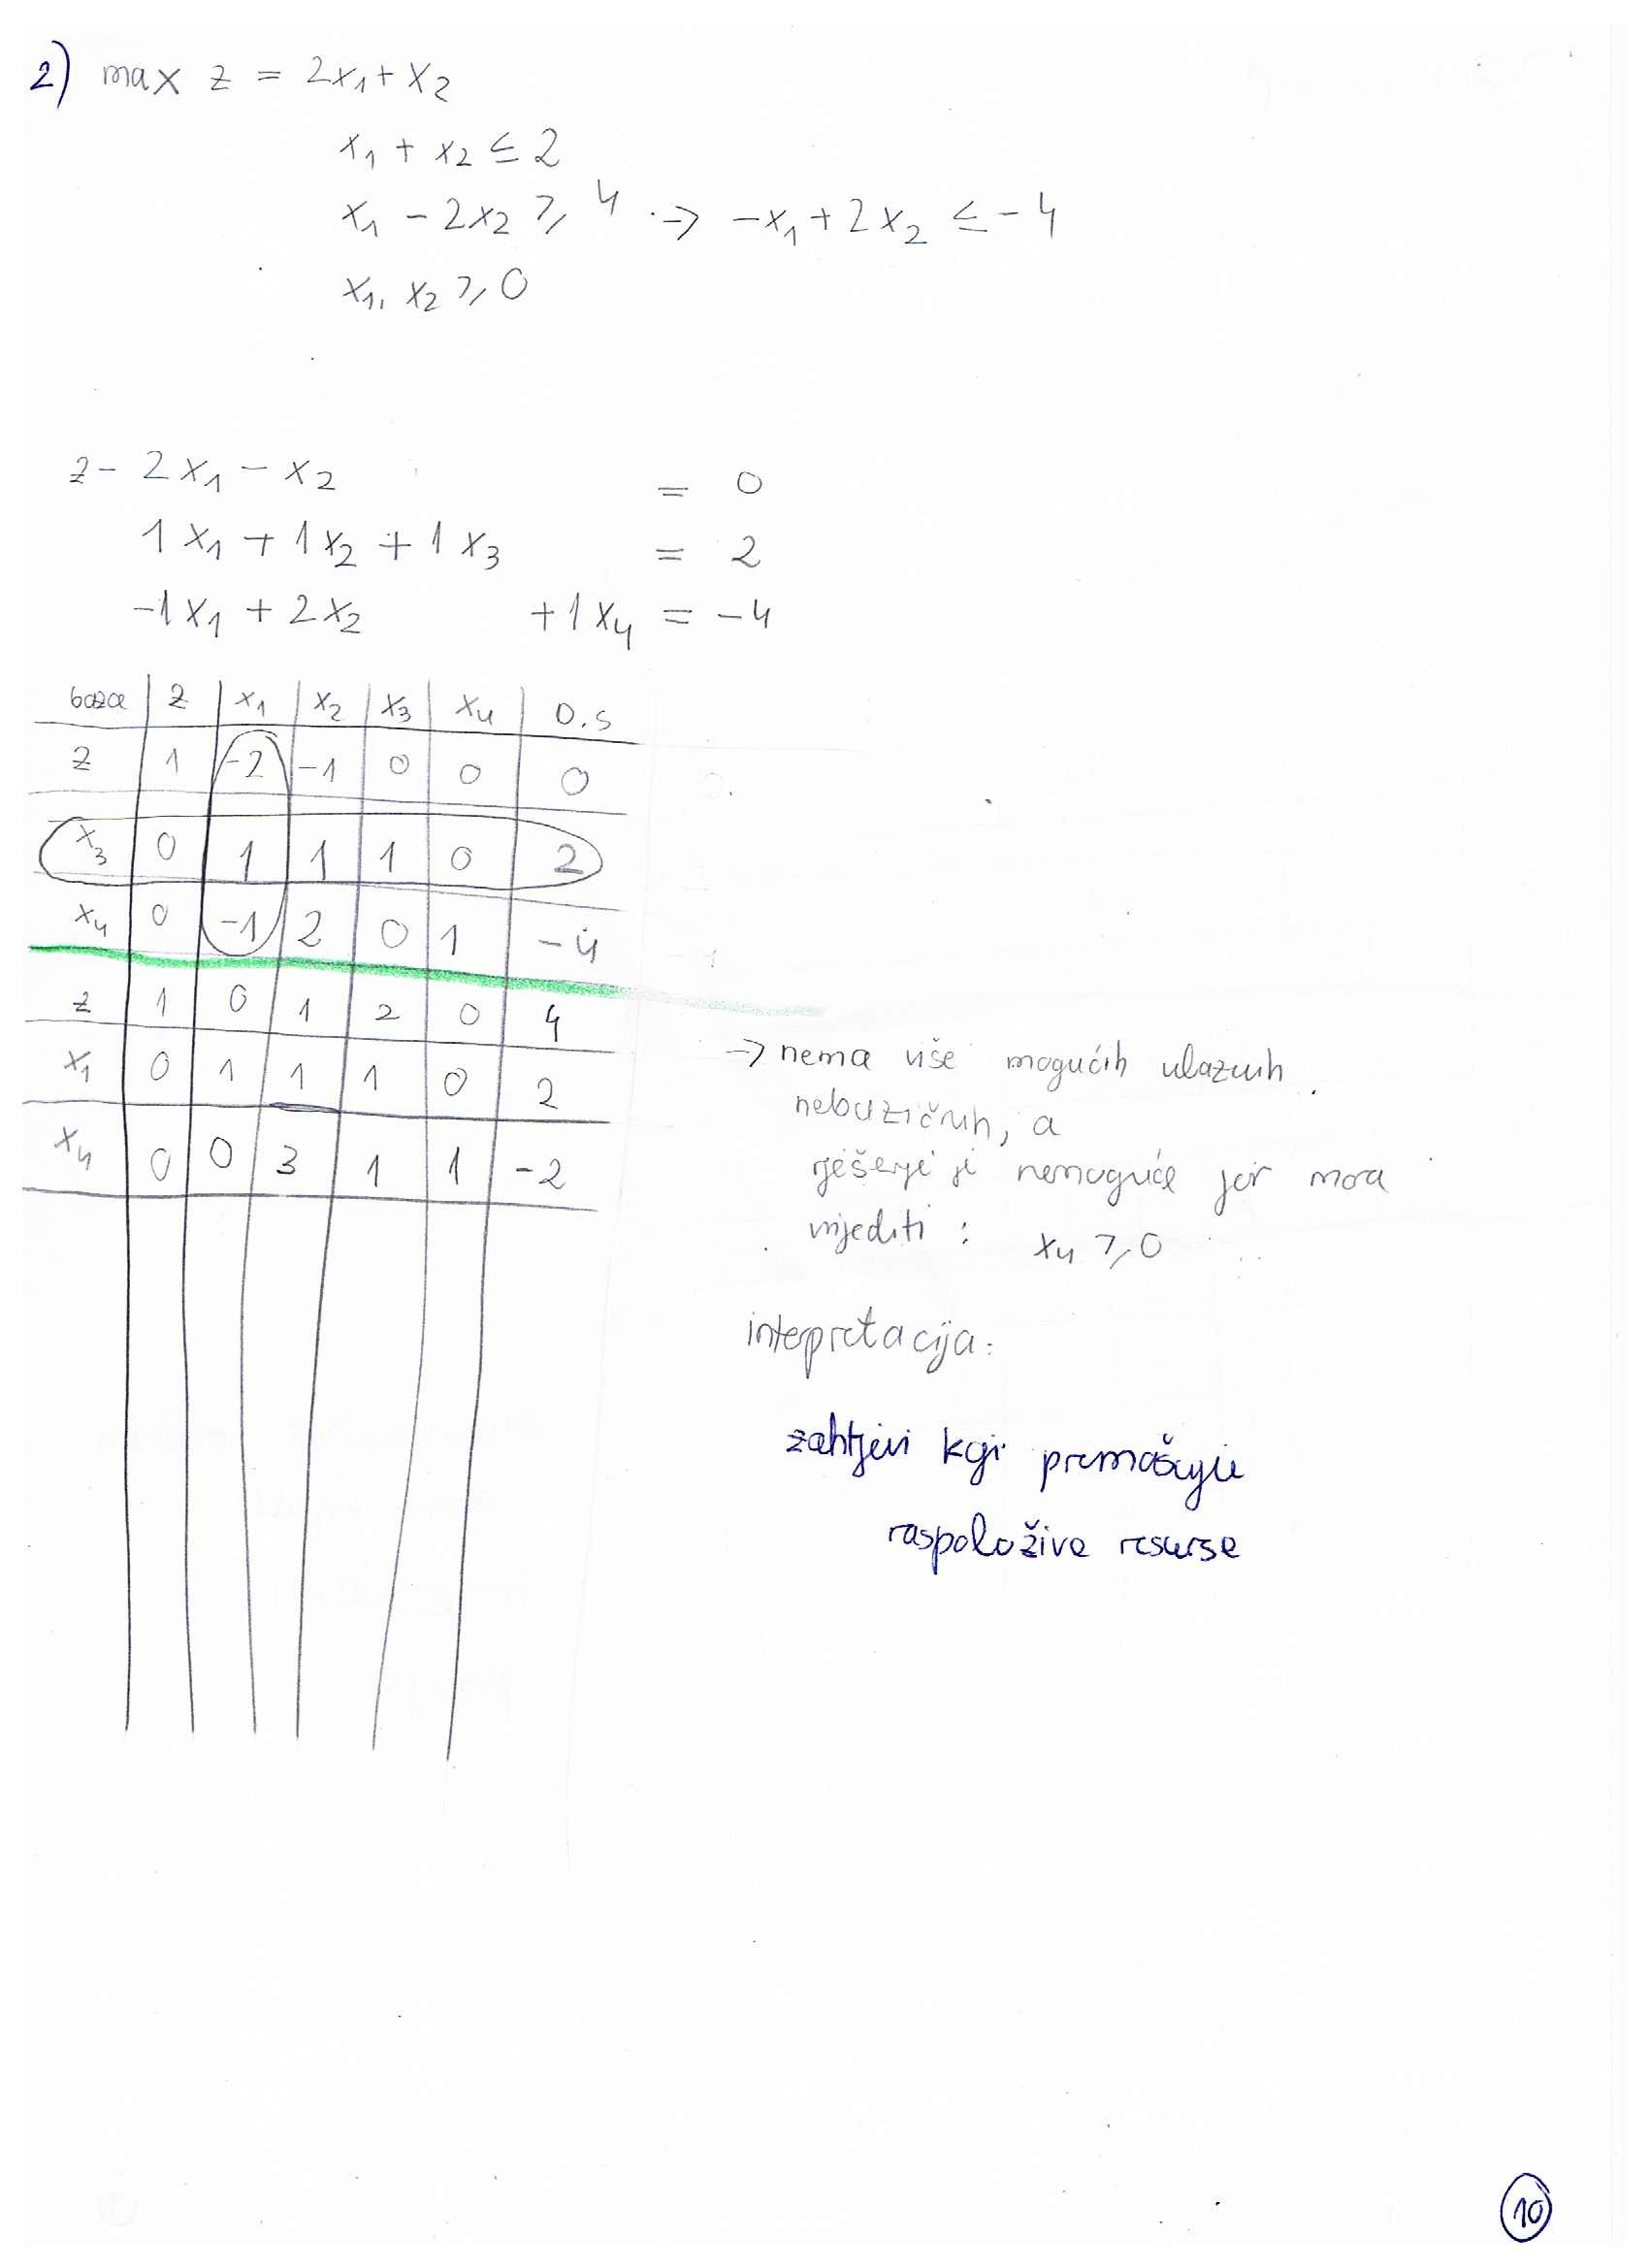 2) max z = 2x₁ + x₂
x₁ + x₂ ≤ 2
x₁ - 2x₂ ≥ 4 → -x₁ + 2x₂ ≤ -4
x₁, x₂ ≥ 0
z - 2x₁ - x₂ = 0
1x₁ + 1x₂ + 1x₃ = 2
-1x₁ + 2x₂ +1x₄ = -4
baza z x₁ x₂ x₃ x₄ D.S
z 1 -2 -1 0 0 0
x₃ 0 1 1 1 0 2
x₄ 0 -1 2 0 1 -4
z 1 0 1 2 0 4
x₁ 0 1 1 1 0 2
x₄ 0 0 3 1 1 -2
→ nema više mogućih ulaznih
nebazičnih, a
rješenje je nemoguće jer mora
vrijediti : x₄ ≥ 0
intepretacija:
zahtjevi koji premašuju
raspoložive resurse
10